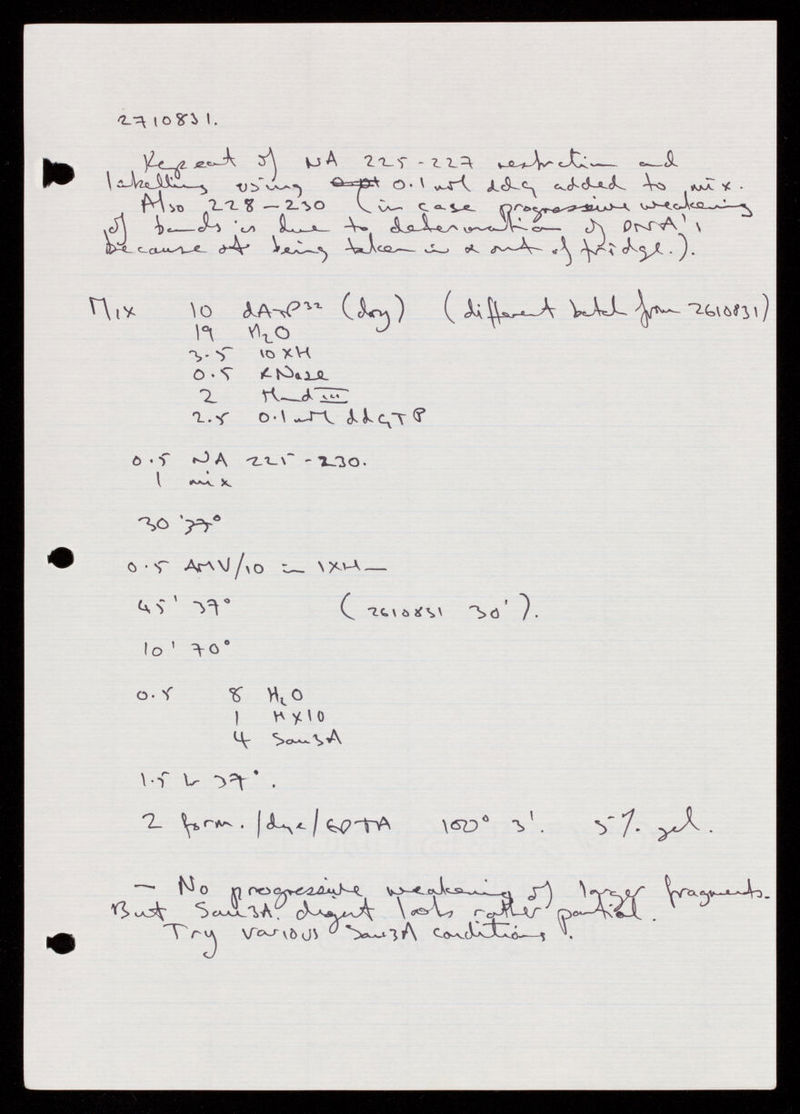 2710831.
Repeat of NA 225-227 restriction and
labelling using 0.1 mM ddG added to mix.
Also 228-230 (in case progressive weakening
of bands is due to deterioration of DNA's
because of being taken in & out of fridge.).
Mix 10 dATP32 (dry) (different batch from 2610831)
19 H2O
3.5 10XH
0.5 RNase
2 Hind III
2.5 0.1 mM ddGTP
0.5 NA 225-230.
1 mix
30' 37°
0.5 AMV/10 in 1XH
45' 37° (2610831 30').
10' 70°
0.5 8 H2O
1 HX10
4 Sau3A
1.5 h 37°.
2 form./dye/EDTA 100° 3'. 5% gel.
- No progressive weakening of larger fragments.
But Sau3A digest looks rather partial.
Try various Sau3A conditions.